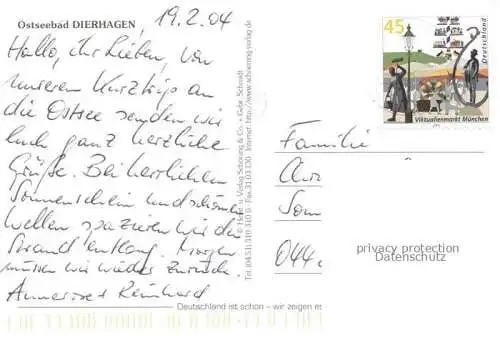 Ostseebad DIERHAGEN, 19.2.04
Hallo, ihr Lieben, von
unserem Kurztrip an
die Ostsee senden wir
Euch ganz herzliche
Grüße. Bei herrlichem
Sonnenschein und schönen
Wellen spazieren wir die
Strand entlang. Morgen
müssen wir wieder zurück.
Annerose + Reinhard
© Heide u. Verlag Schöning & Co. + Gebr. Schmidt
Internet: http://www.schoening-verlag.de
Deutschland ist schön – wir zeigen es
45
Deutschland
Viktualienmarkt München
Familie
044
privacy protection
Datenschutz